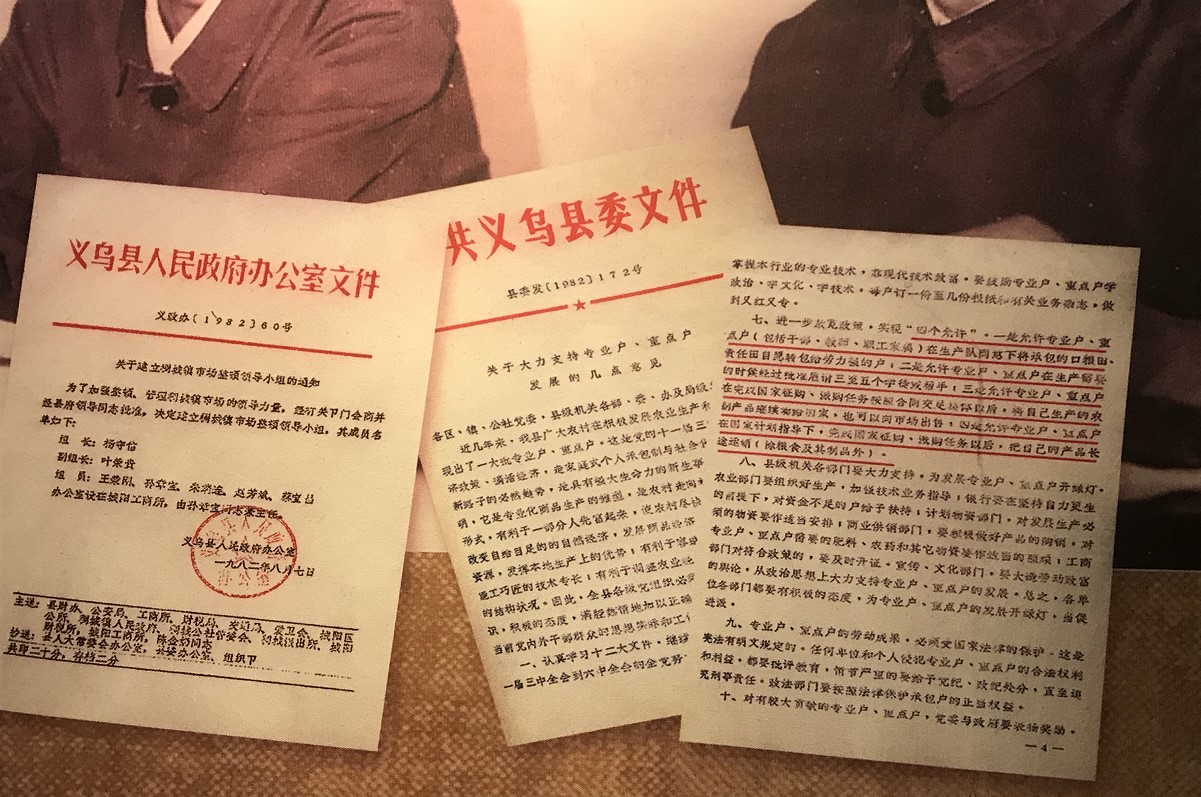 义乌县人民政府办公室文件
义政办〔1982〕60号
关于建立稠城镇市场整顿领导小组的通知
为了加强整顿、管理稠城镇市场的领导力量,经有关部门会商并
经县府领导同志批准,决定建立稠城镇市场整顿领导小组,其成员名
单如下:
组 长:杨守信
副组长:叶荣贵
组 员:王荣刚、孙 朱 赵芳斌、蔡宝昌
办公室设在城阳工商所,由孙 同志兼主任。
义乌县人民政府办公室
一九八二年八月七日
主送:县财办、公安局、工商所、财税局、交通局、爱卫会、城阳区
公所、稠城镇人民政府、稠城公社管委会、稠城派出所、城阳
财税所、城阳工商所、陈金 同志
抄送:县人大常委会办公室,县委办公室、组织部
共印二十分,存档二分
共义乌县委文件
县委发〔1982〕172号
关于大力支持专业户、重点户
发展的几点意见
各区、镇、公社党委,县级机关各部、委、办及局级
近几年来,我县广大农村在积极发展农业生产和
现出了一大批专业户、重点户。这是党的十一届三
济政策、搞活经济,是家庭式个人承包制与社会
新路子的必然趋势,是具有强大生命力的新生事
明,它是专业化商品生产的雏型,是农村走向
形式,有利于一部分人先富起来,使农村尽快
改变自给自足的的自然经济,发展商品经济
资源,发挥本地生产上的优势;有利于
能工巧匠的技术专长;有利于调整农业经
的结构状况。因此,全县各级党组织必须
识,积极的态度,满腔热情地加以正确
当前党内外干部群众的思想实际和工作
一、认真学习十二大文件,继续
一届三中全会到六中全会的全党努
掌握本行业的专业技术,靠现代技术致富。要鼓励专业户、重点户学
政治、学文化、学技术,每户订一份至几份报纸和有关业务杂志,做
到又红又专。
七、进一步放宽政策,实现“四个允许”。一是允许专业户、重
点户(包括干部、教师、职工家属)在生产队同意下将承包的口粮田、
责任田自愿转包给劳力强的户;二是允许专业户、重点户在生产需要
的时候经过批准雇请三至五个学徒或帮手;三是允许专业户、重点户
在完成国家征购、派购任务按照合同交足集体以后,将自己生产的农
副产品继续卖给国家,也可以向市场出售;四是允许专业户、重点户
在国家计划指导下,完成国家征购、派购任务以后,把自己的产品长
途运销(除粮食及其制品外)。
八、县级机关各部门要大力支持,为发展专业户、重点户开绿灯。
农业部门要组织好生产,加强技术业务指导;银行要在坚持自力更生
的前提下,对资金不足的户给予扶持;计划物资部门,对发展生产必
须的物资要作适当安排;商业供销部门,要积极做好产品的购销,对
专业户、重点户需要的肥料、农药和其它物资要作适当的照顾;工商
部门对符合政策的,要及时开证。宣传、文化部门,要大造劳动致富
的舆论,从政治思想上大力支持专业户、重点户的发展。总之,各单
位各部门都要有积极的态度,为专业户、重点户的发展开绿灯,当促
进派。
九、专业户、重点户的劳动成果,必须受国家法律的保护。这是
宪法有明文规定的。任何单位和个人侵犯专业户、重点户的合法权利
和利益,都要批评教育,情节严重的要给予党纪、政纪处分,直至追
究刑事责任。政法部门要按照法律保护承包户的正当权益。
十、对有较大贡献的专业户、重点户,党委与政府要表扬奖励。
—4—